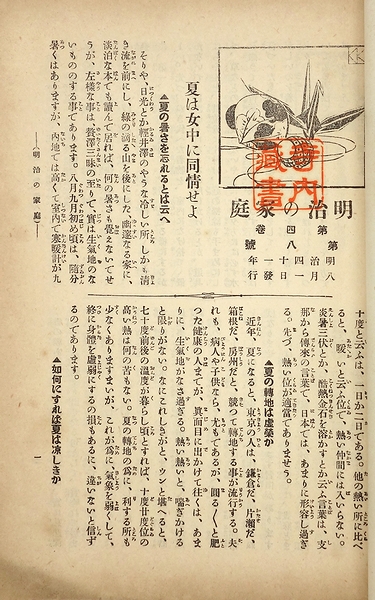 明治の家庭
第四卷
第八號
明治四十年
八月一日
發行
夏は女中に同情せよ
▲夏の暑さを忘れるとは云へ
そりや、日光とか輕井澤のやうな涼しい所、しかも清
き流を前にし、綠の滴る山を後にした、幽邃な家に、
淡泊な本でも讀んで居れば、何の暑さも覺えないでせ
うが、左樣な事は、贅澤三昧の至りで、實は生氣地のな
いものゝする事であります。八月九月初め頃は、隨分
暑くはありますが、內地では高くて室內で寒暖計が九
十度と云ふは、一日か二日である。他の熱い所に比べ
ると、暖いと云ふ位で、熱い仲間には入いらない。
炎暑三伏とか、酷熱金石を溶かすとか云ふ言葉は、支
那から傳來の言葉で、日本では、あまりに形容し過ぎ
る。先づ、熱い位が適當でありませう。
▲夏の轉地は虛榮か
近年、夏になると、東京の人は、鎌倉だ、片瀨だ、
箱根だ、房州だと、競つて轉地する事が流行する。夫
れも、病人や子供なら、尤もであるが、圓るく〳〵と肥
つた健康の人までが、眞面目に出かけて往くは、あま
りに、生氣地がなさ過ぎる。熱い熱いと、喘ぎかける
と限りがない。なにこれしきがと、ウンと堪へると、
七十度前後の溫度が暮らし頃とすれば、十度廿度位の
高い熱は何の苦もない。夏の轉地の爲に、利する所も
少なくありますまいが、これが爲に、氣象を弱くして、
終に身體を虛弱にするの損もあるに、違いないと信ず
るのであります。
▲如何にすれば夏は凉しきか
―(明治の家庭)―
一